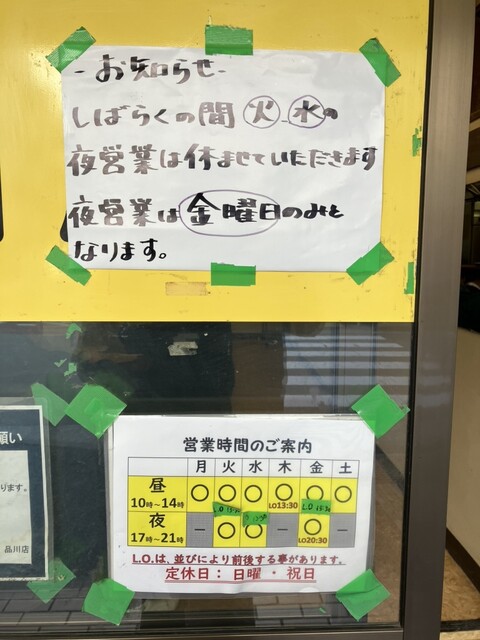 -お知らせ-
しばらくの間 火、水の
夜営業は休ませていただきます
夜営業は金曜日のみと
なります。
営業時間のご案内
月 火 水 木 金 土
昼 10時〜14時 ○ ○ ○ ○ ○ ○
LO13:30
夜 17時〜21時 － ○ ○ － ○ －
LO20:30
L.O.は、並びにより前後する事があります。
定休日： 日曜 ・ 祝日
願い
ります。
品川店